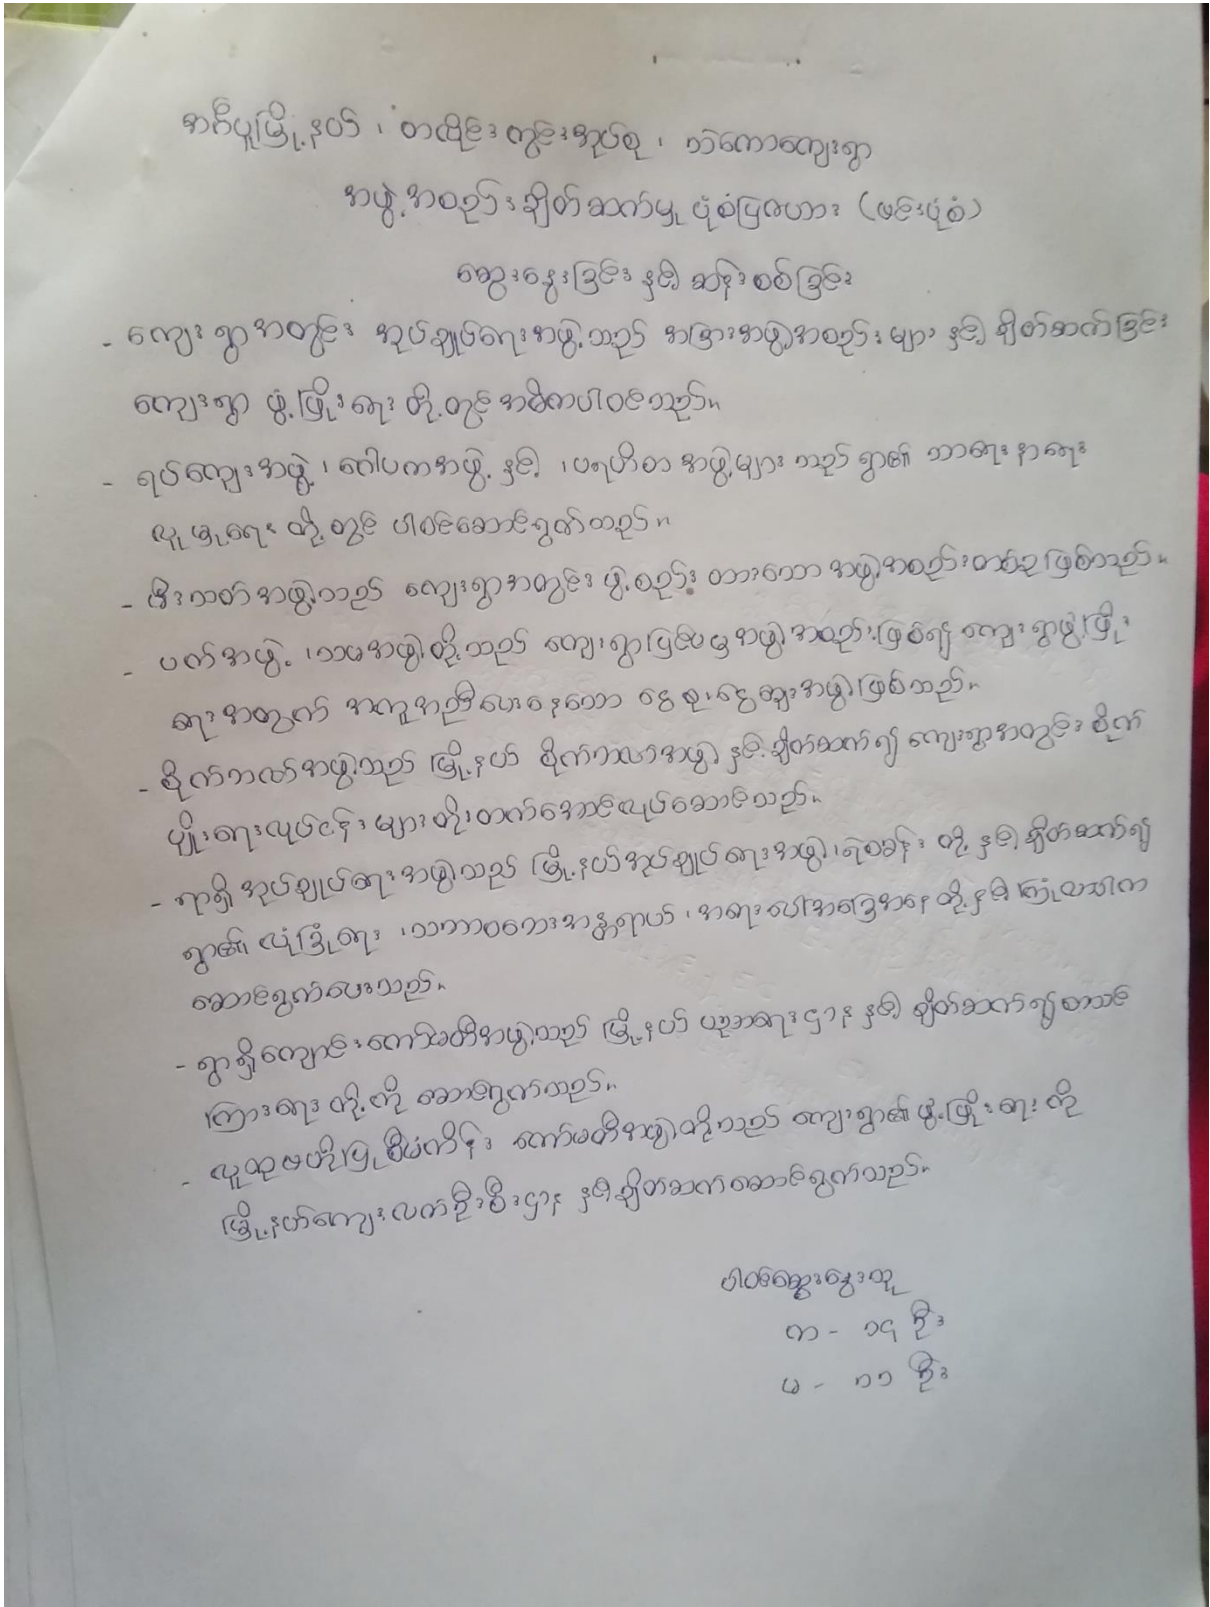 အင်္ဂပူမြို့နယ် ၊ တလိုင်းကွင်းအုပ်စု ၊ ဘဲကောကျေးရွာ
အဖွဲ့အစည်းချိတ်ဆက်မှု ပုံစံပြဇယား (ဗင်းပုံစံ)
ဆွေးနွေးခြင်း နှင့် ဆန်းစစ်ခြင်း
- ကျေးရွာအတွင်း အုပ်ချုပ်ရေးအဖွဲ့သည် အခြားအဖွဲ့အစည်းများ နှင့် ချိတ်ဆက်ခြင်း
ကျေးရွာ ဖွံ့ဖြိုးရေး တို့တွင် အဓိကပါဝင်သည်။
- ရပ်ကျေးအဖွဲ့ ၊ ဂေါပကအဖွဲ့ နှင့် ၊ ပရဟိတ အဖွဲ့များ သည် ရွာ၏ သာရေးနာရေး
လူမှုရေး တို့တွင် ပါဝင်ဆောင်ရွက်သည်။
- မီးသတ်အဖွဲ့သည် ကျေးရွာအတွင်း ဖွဲ့စည်းထားသော အဖွဲ့အစည်းတစ်ခု ဖြစ်သည်။
- ပက်အဖွဲ့ ၊ သမအဖွဲ့တို့သည် ကျေးရွာပြင်ပမှ အဖွဲ့အစည်းဖြစ်၍ ကျေးရွာဖွံ့ဖြိုး
ရေးအတွက် အကူအညီပေးနေသော ငွေစုငွေချေးအဖွဲ့ဖြစ်သည်။
- စိုက်ဘဏ်အဖွဲ့သည် မြို့နယ် စိုက်ဘဏ်အဖွဲ့ နှင့် ချိတ်ဆက်၍ ကျေးရွာအတွင်း စိုက်
ပျိုးရေးလုပ်ငန်းများတိုးတက်အောင်လုပ်ဆောင်သည်။
- ရွာရှိ အုပ်ချုပ်ရေးအဖွဲ့သည် မြို့နယ်အုပ်ချုပ်ရေးအဖွဲ့ ၊ ရဲစခန်း တို့ နှင့် ချိတ်ဆက်၍
ရွာ၏ လုံခြုံရေး ၊ သဘာဝဘေးအန္တရာယ် ၊ အရေးပေါ်အခြေအနေ တို့နှင့် ကြုံလာပါက
ဆောင်ရွက်ပေးသည်။
- ရွာရှိကျောင်းကော်မတီအဖွဲ့သည် မြို့နယ် ပညာရေးဌာန နှင့် ချိတ်ဆက်၍ စာသင်
ကြားရေး တို့ကို ဆောင်ရွက်သည်။
- လူထုဗဟိုပြုစီမံကိန်း ကော်မတီအဖွဲ့တို့သည် ကျေးရွာ၏ ဖွံ့ဖြိုးရေး ကို
မြို့နယ်ကျေးလက်ဦးစီးဌာန နှင့်ချိတ်ဆက်ဆောင်ရွက်သည်။
ပါဝင်ဆွေးနွေးသူ
က - ၁၄ ဦး
မ - ၁၁ ဦး